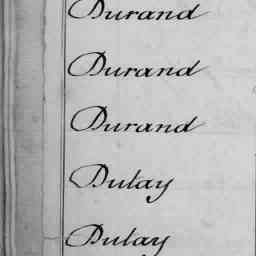 Durand
Durand
Durand
Dutay
Dutay